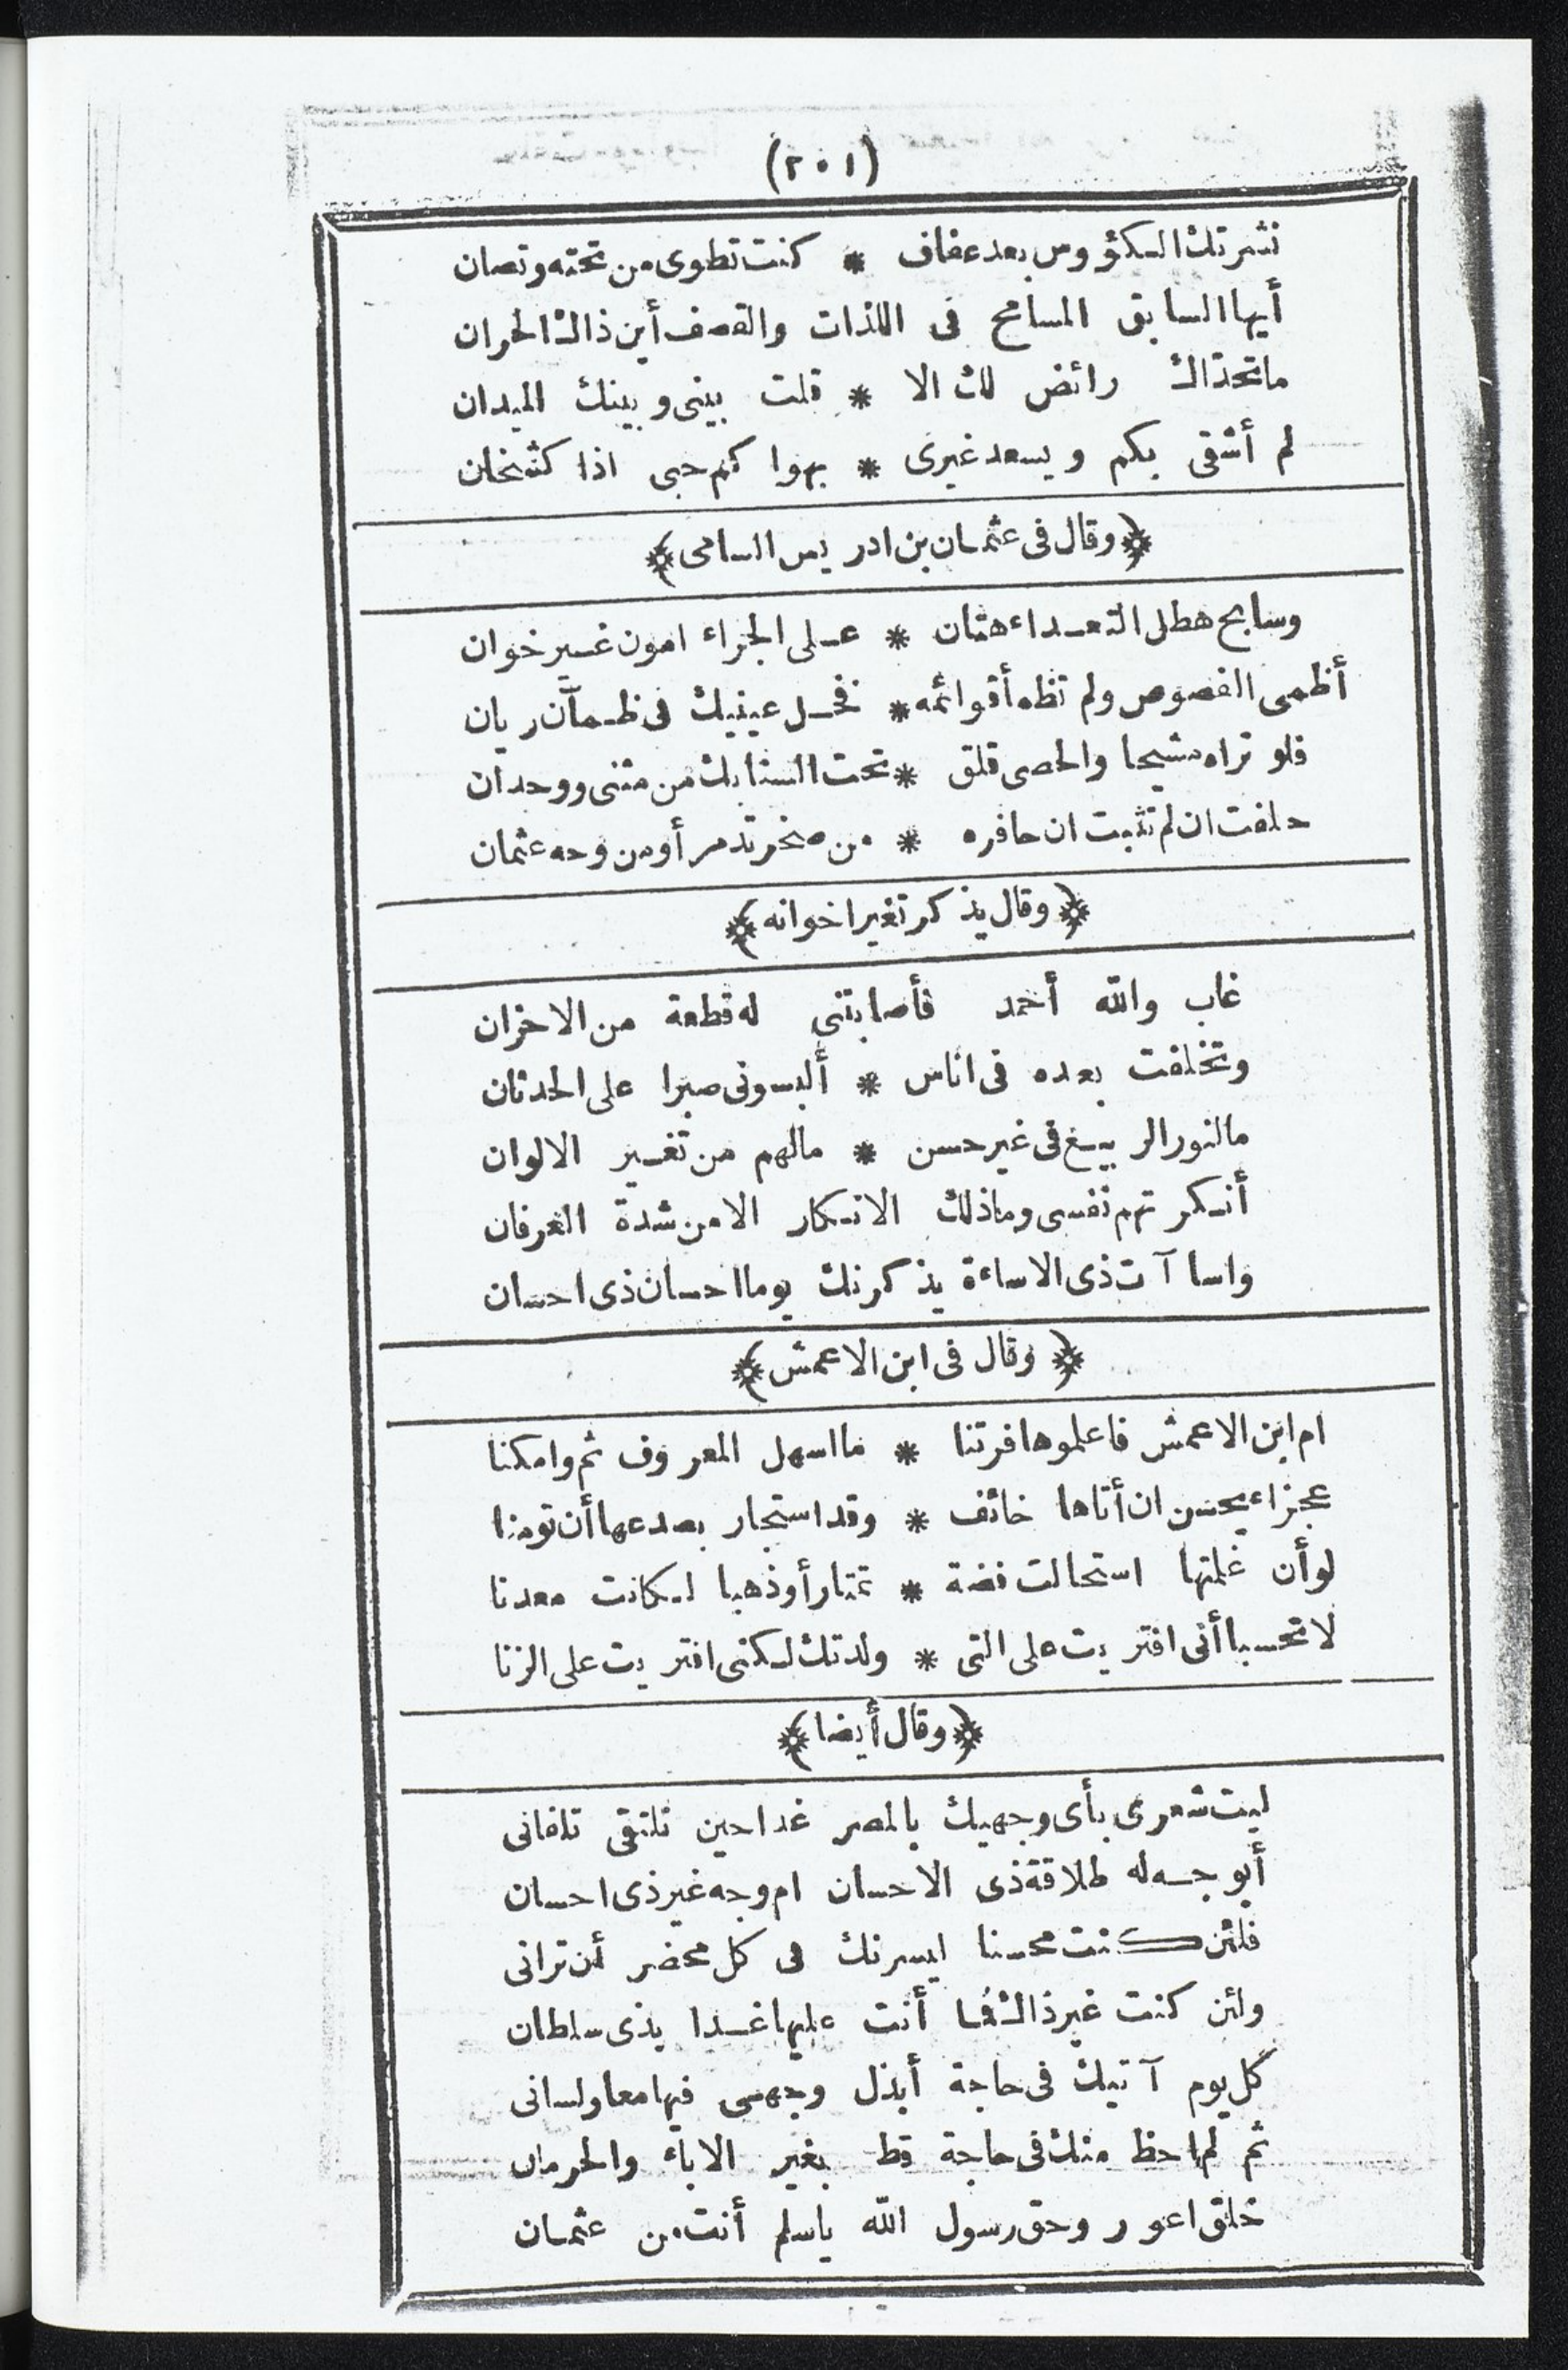 (٢٠١)
نشرتك الكؤوس بعد عفاف * كنت تطوى من تحته وتصان
أيها السابق المسامح فى اللذات والقصف أين ذاك الحران
ما تحذاك رائض لك الا * قلت بينى وبينك الميدان
لم أشقى بكم ويسعد غيرى * بهواكم حبى اذا كشخان
﴿وقال فى عثمان بن ادريس السامى﴾
وسابح هطل التعداء هتان * على الجراء امون غير خوان
أظمى الفصوص ولم تظمأ قوائمه * فخل عينيك فى ظمآن ريان
فلو تراه مشيحا والحصى قلق * تحت السنابك من مثنى ووحدان
حلفت ان لم تثبت ان حافره * من صخر تدمر أو من وجه عثمان
﴿وقال يذكر تغير اخوانه﴾
غاب والله أحمد فأصابتنى له قطعة من الاحزان
وتخلفت بعده فى اناس * ألبسونى صبرا على الحدثان
ما لنور الربيع فى غير حسن * ما لهم من تغير الالوان
أنكرتهم نفسى وما ذلك الانكار الا من شدة العرفان
واساآت ذى الاساءة يذكرنك يوما احسان ذى احسان
﴿وقال فى ابن الاعمش﴾
ام ابن الاعمش فاعلموها فرتنا * ما اسهل المعروف ثم وامكنا
عجزاء يحسن ان أتاها خائف * وقد استجار بصدعها أن تومنا
لو أن غلمتها استحالت فضة * تمتار أو ذهبا لكانت معدنا
لا تحسبا أنى افتريت على التى * ولدتك لكنى افتريت على الزنا
﴿وقال أيضا﴾
ليت شعرى بأى وجهيك بالمصر غدا حين نلتقى تلقانى
أبوجه له طلاقة ذى الاحسان ام وجه غير ذى احسان
فلئن كنت محسنا ليسرنك فى كل محضر أن ترانى
ولئن كنت غير ذاك فما أنت عليها غدا بذى سلطان
كل يوم آتيك فى حاجة أبذل وجهى فيها معا ولسانى
ثم لم احظ منك فى حاجة قط بغير الاباء والحرمان
خلق اعور وحق رسول الله ياسلم أنت من عثمان